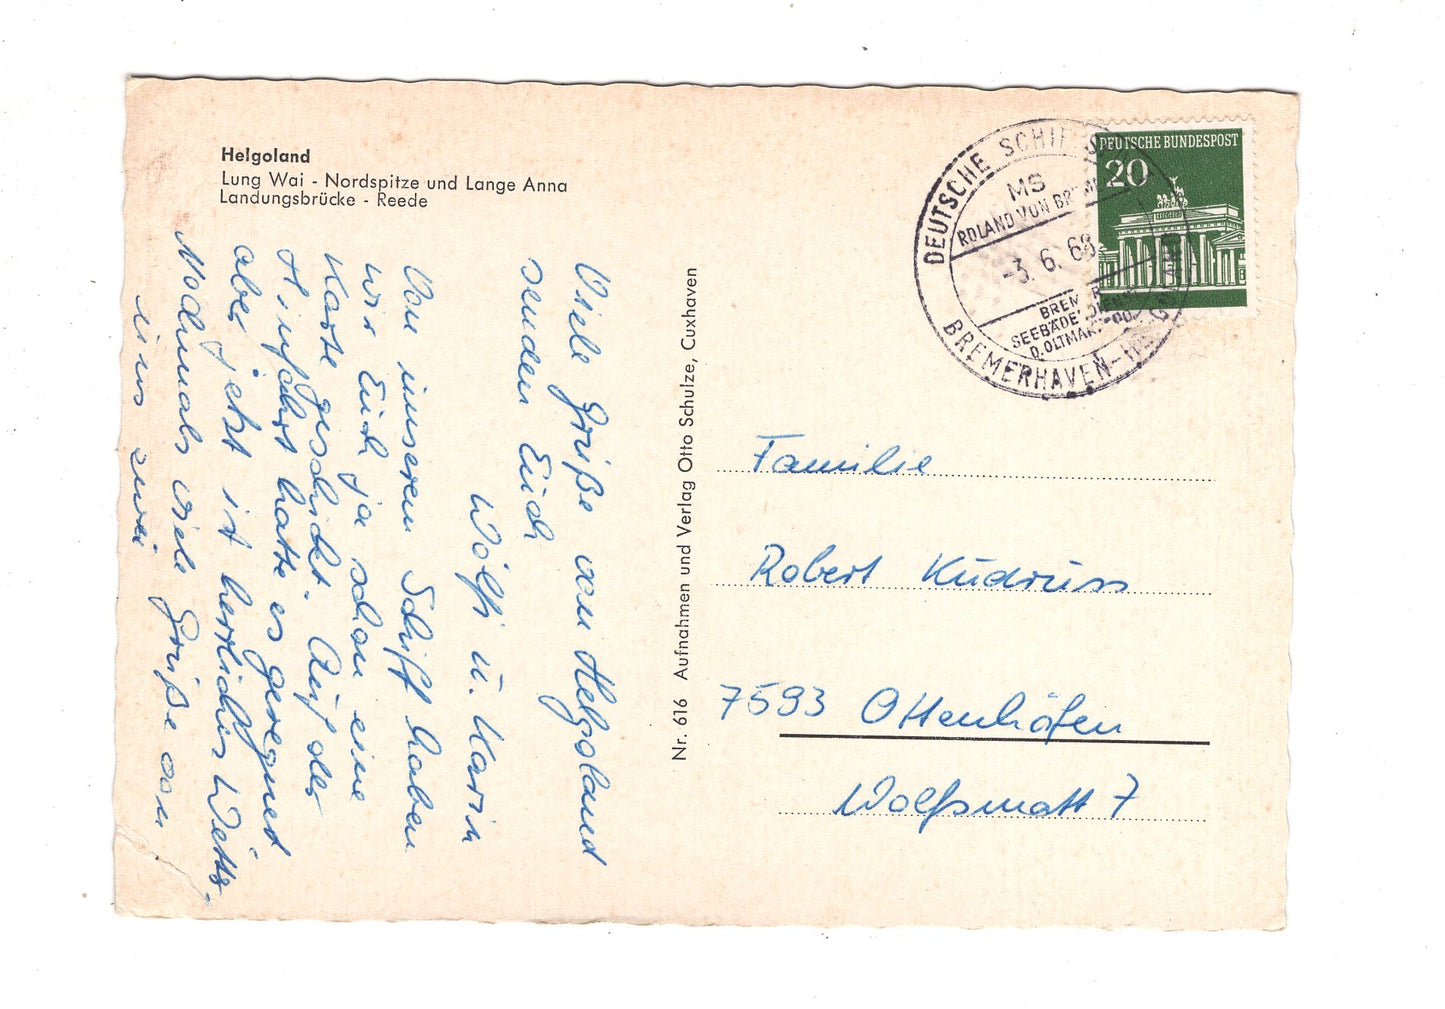 Helgoland
Lung Wai - Nordspitze und Lange Anna
Landungsbrücke - Reede
Viele Grüße von Helgoland
senden Euch
Wolfi u. Karin
Von unserem Schiff haben
wir Euch ja schon eine
Karte geschickt. Auf der
Hinfahrt hatte es geregnet
aber jetzt ist herrliches Wetter.
Nochmals viele Grüße von
uns zwei
Nr. 616 Aufnahmen und Verlag Otto Schulze, Cuxhaven
DEUTSCHE
MS
ROLAND VON BREMEN
-3. 6. 68
SEEBÄDERDIENST
D. OLTMANN
BREMERHAVEN-HELGOLAND
DEUTSCHE BUNDESPOST
20
Familie
Robert Kudruss
7593 Ottenhöfen
Wolfsmatt 7